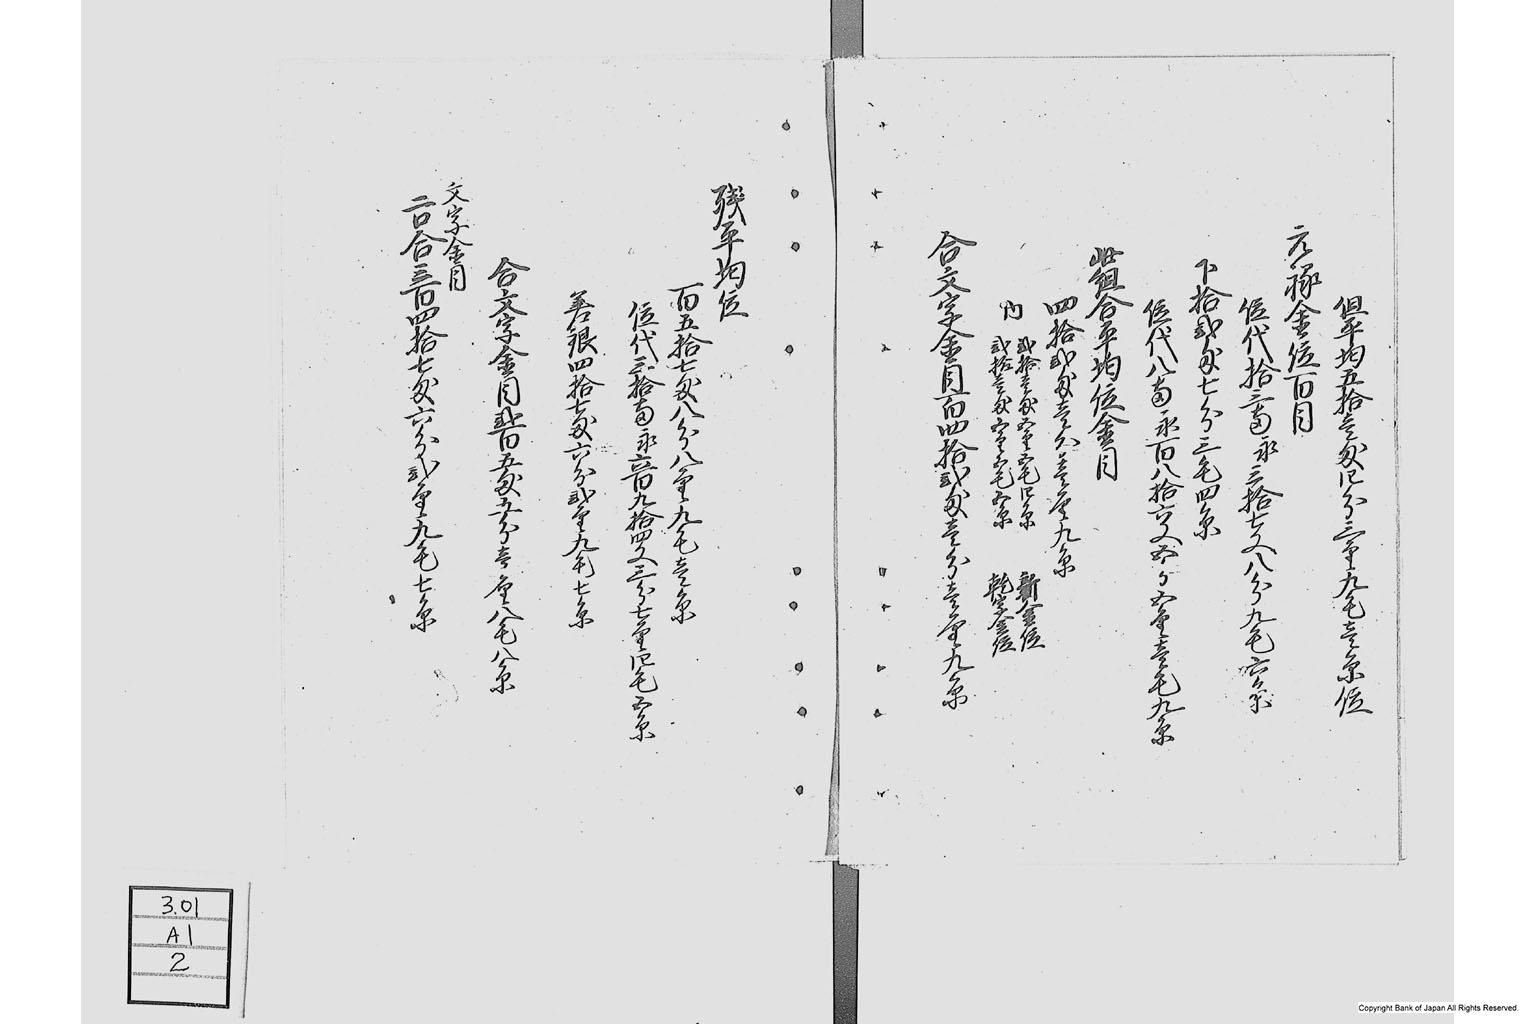 但平均五拾壱匁四分三厘九毛壱糸位
元禄金位百目
位代拾三両永三拾七文八分九毛六糸
下拾弐匁七分三毛四糸
位代八両永百八拾六文五分五厘壱毛九糸
此組合平均位金目
四拾弐匁壱分壱厘九糸
内
弐拾壱匁五厘五毛四糸 新金位
弐拾壱匁五厘五毛五糸 乾字金位
合文字金目百四拾弐匁壱分壱厘九糸
残平均位
百五拾七匁八分八厘九毛壱糸
位代三拾両永六百九拾四文三分七厘四毛五糸
差銀四拾七匁六分弐厘九毛七糸
合文字金目弐百五匁五分壱厘八毛八糸
文字金目
二口合三百四拾七匁六分弐厘九毛七糸
3.01
A1
2
Copyright Bank of Japan All Rights Reserved.